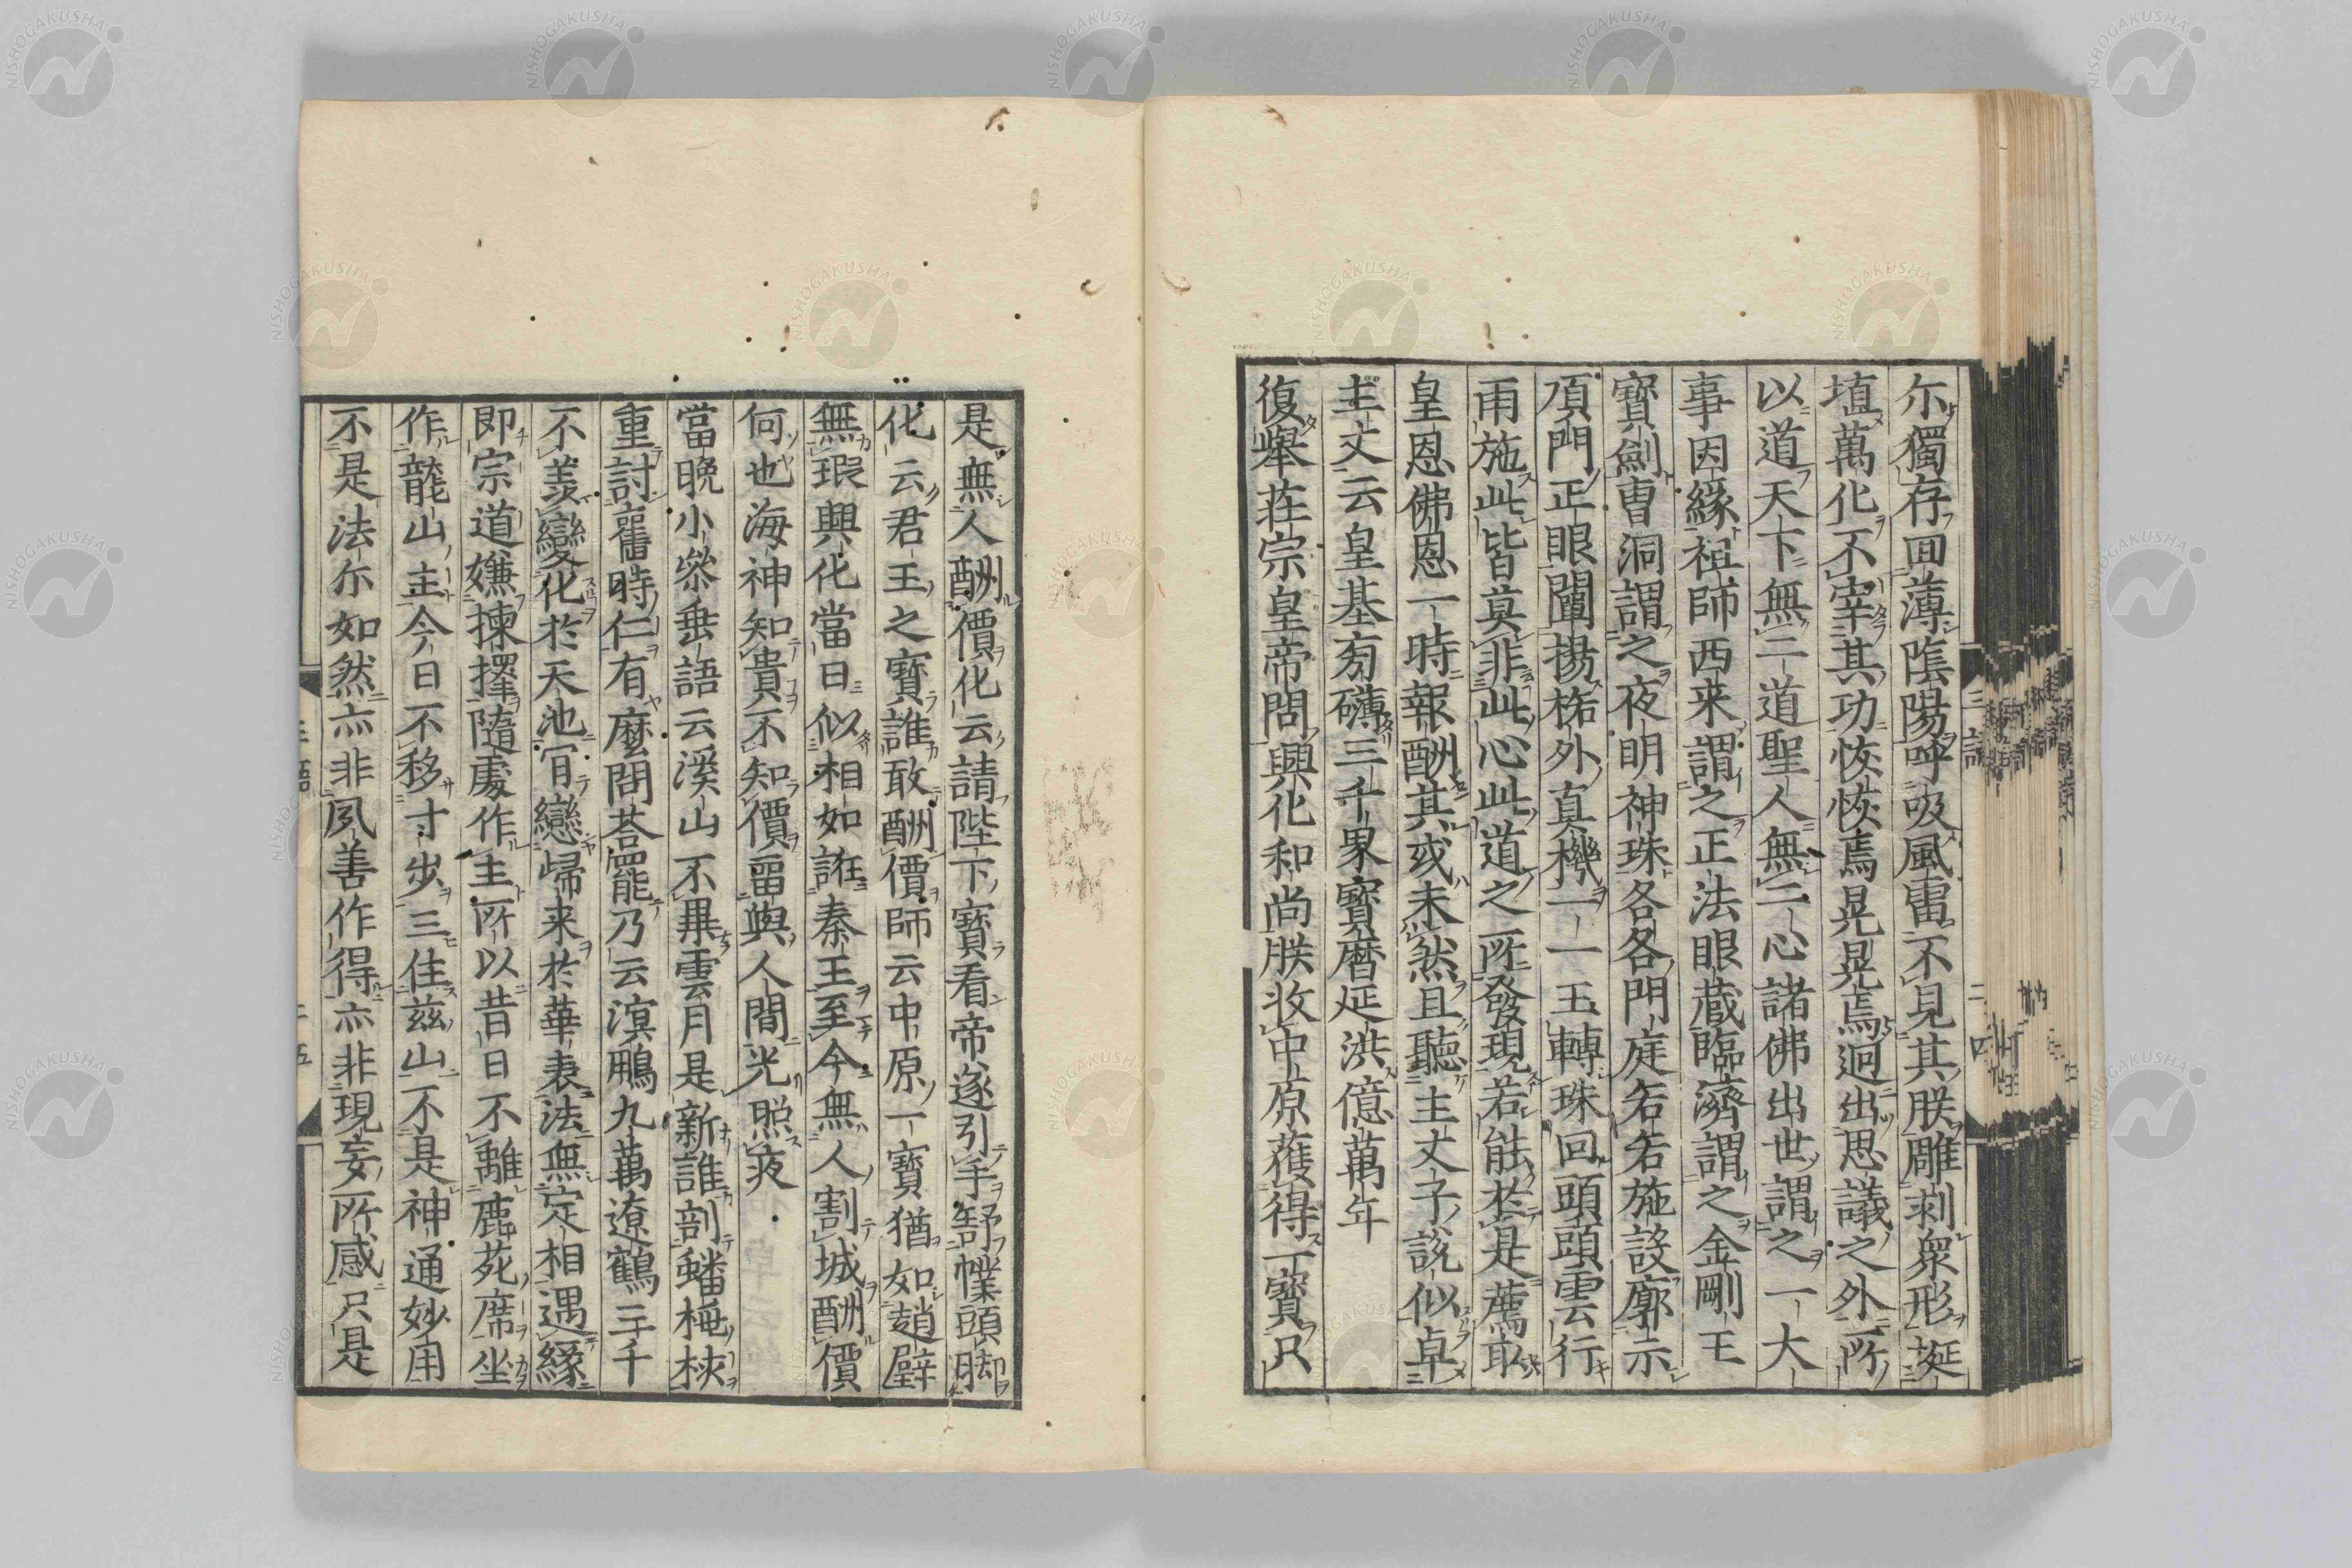 尓獨存回薄陰陽呼吸風雷不見其朕雕刹衆形埏
埴萬化不宰其功恢恢焉晃晃焉迥出思議之外所
以道天下無二道聖人無二心諸佛出世謂之一大
事因緣祖師西来謂之正法眼蔵臨濟謂之金剛王
寳劍曺洞謂之夜明神珠各各門庭若若施設廓示
頂門正眼闡揚格外真機一一玉轉珠回頭頭雲行
雨施此皆莫非此心此道之所發現若能於是薦取
皇恩佛恩一時報酬其或未然且聽主丈子說似卓
主丈云皇基旁礴三千界寳曆延洪億萬年
復舉荘宗皇帝問興化和尚朕收中原獲得一寳只
是無人酬價化云請陛下寳看帝遂引手舒幞頭脚
化云君王之寳誰敢酬價師云中原一寳猶如趙璧
無瑕興化當日似相如誑秦王至今無人割城酬價
何也海神知貴不知價留與人間光照夜
當晩小叅垂語云溪山不異雲月是新誰剖蟠桃核
重討舊時仁有麼問荅罷乃云溟鵬九萬遼鶴三千
不羨變化於天池肎戀歸来於華表法無定相遇緣
即宗道嫌揀擇隨處作主所以昔日不離鹿苑席坐
作龍山主今日不移寸步三住兹山不是神通妙用
不是法尓如然亦非夙善作得亦非現妄所感只是